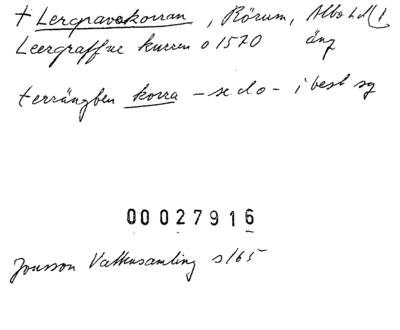 † Lergravakorran, Rörum, Albo hd
Leergraffue kurren o 1570 äng
terrängben korra - se do - i best sg
00027916
Jonsson Vattensamling s 165